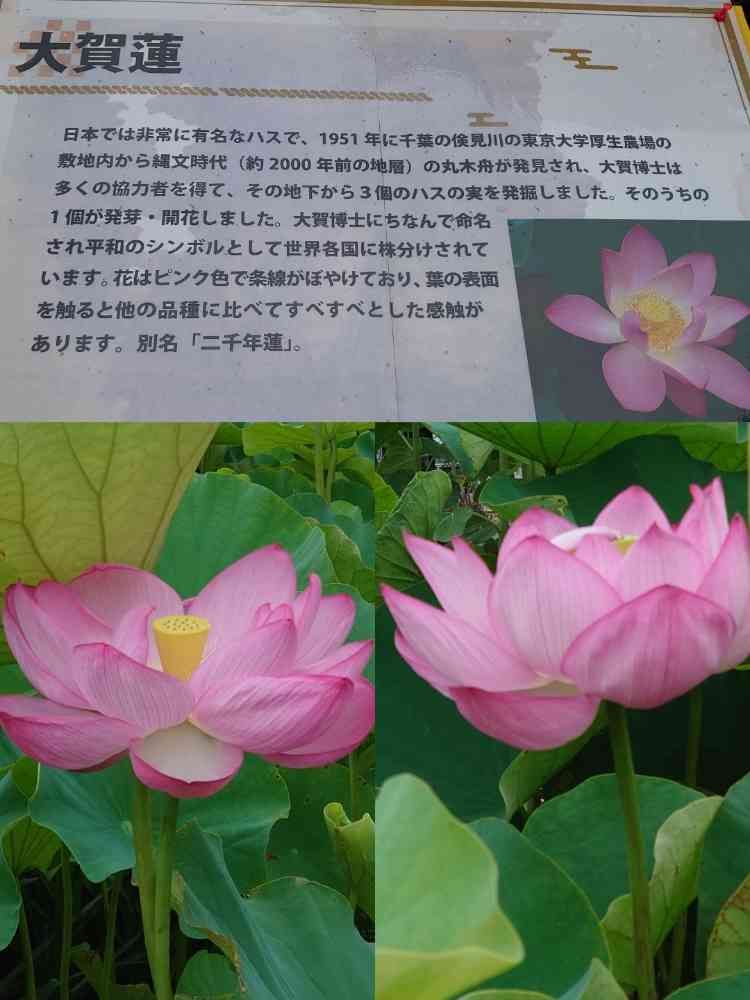 大賀蓮
日本では非常に有名なハスで、1951 年に千葉の検見川の東京大学厚生農場の
敷地内から縄文時代（約 2000 年前の地層）の丸木舟が発見され、大賀博士は
多くの協力者を得て、その地下から３個のハスの実を発掘しました。そのうちの
１個が発芽・開花しました。大賀博士にちなんで命名
され平和のシンボルとして世界各国に株分けされて
います。花はピンク色で条線がぼやけており、葉の表面
を触ると他の品種に比べてすべすべとした感触が
あります。別名「二千年蓮」。